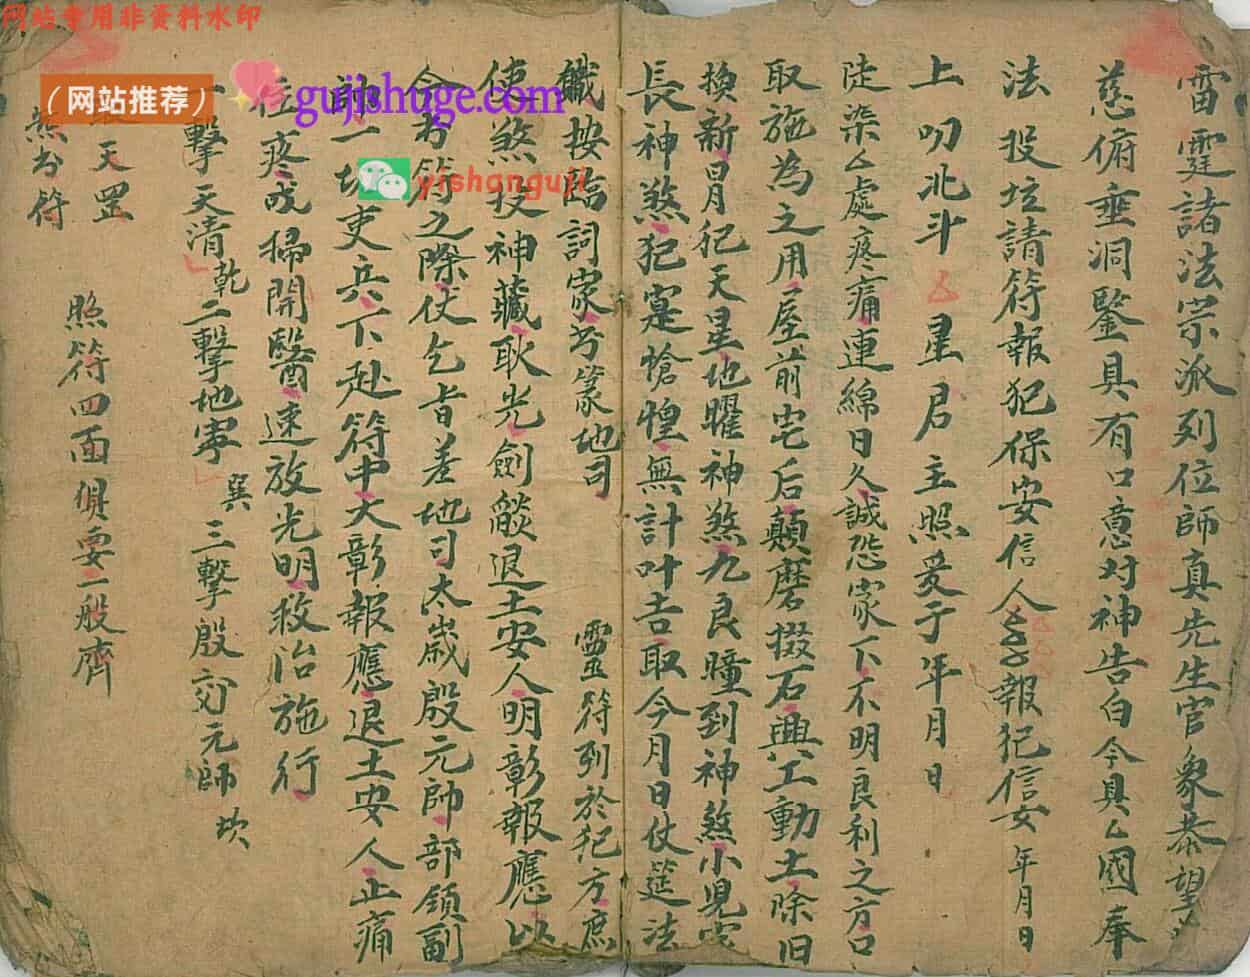 网站专用非资料水印
（网站推荐）
gujishuge.com
yishanguji
雷霆諸法宗派列位師真先生官衆恭望
慈俯垂洞鑒具有口意对神告白今具厶國奉
法投坛請符報犯保安信人 報犯信女 年月日
上叩北斗 星君主照爰于年月日
陡染厶處疼痛連綿日久誠恐家下不明良利之方口
取施為之用屋前宅后顛磨掇石興工動土除旧
換新冐犯天星地曜神煞九良曈到神煞小児
長神煞犯寔愴惶無計叶吉取今月日仗筵法
職按臨詞家 篆地司 靈符列於犯方庶
使煞投神藏耿光劍燄退土安人明彰報應以
今 符之際伏乞旨差地司太歲殷元帥部領副
帥一切吏兵下赴符中大彰報應退土安人止痛
疼成掃開醫速放光明救治施行
一擊天清乾 二擊地寧巽 三擊殷交元帥坎
天罡
符 照符四面俱要一般齊